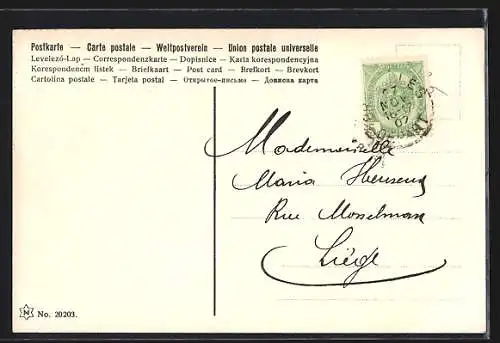 Postkarte – Carte postale – Weltpostverein – Union postale universelle
Levelező-Lap – Correspondenzkarte – Dopisnice – Karta korespondencyjna
Korespondenční listek – Briefkaart – Post card – Brefkort – Brevkort
Cartolina postale – Tarjeta postal – Открытое-письмо – Дописна карта
Mademoiselle
Maria Heusens
Rue Mosselman
Liège
No. 20203.